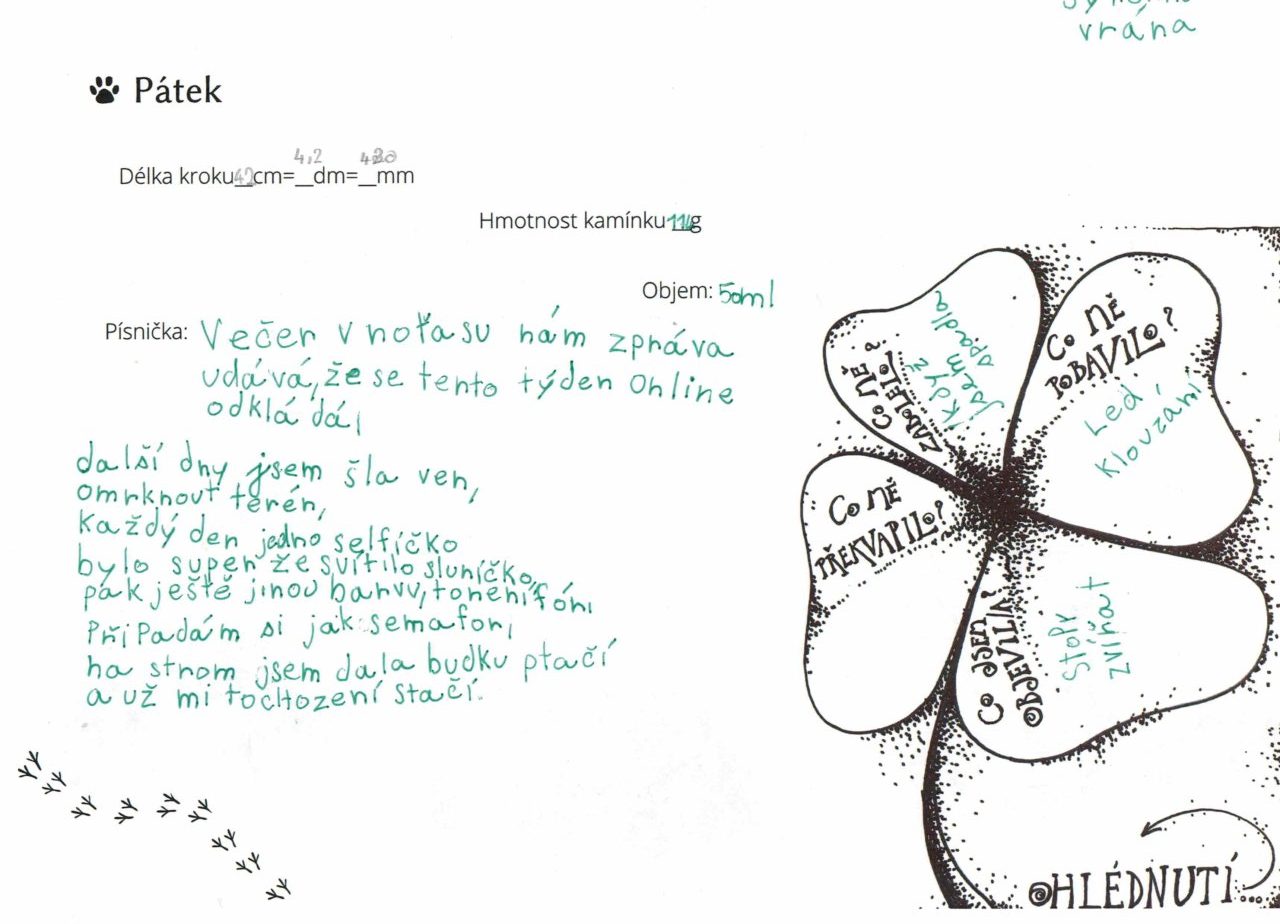 vrána
Pátek
4,2 420
Délka kroku 42 cm=__dm=__mm
Hmotnost kamínku 114g
Objem: 50ml
Písnička: Večer v noťasu nám zpráva
udává, že se tento týden Online
odkládá,
další dny jsem šla ven,
omrknout terén,
Každý den jedno selfíčko
bylo super že svítilo sluníčko,
pak ještě jinou barvu, to není fór,
Připadám si jak semafor,
na strom jsem dala budku ptačí
a už mi to chození stačí.
CO MĚ
ZABOLELO?
Když
jsem
spadla
CO MĚ
POBAVILO?
Led,
Klouzání
CO MĚ
PŘEKVAPILO?
CO JSEM
OBJEVIL/A?
Stopy
zvířat
OHLÉDNUTÍ...